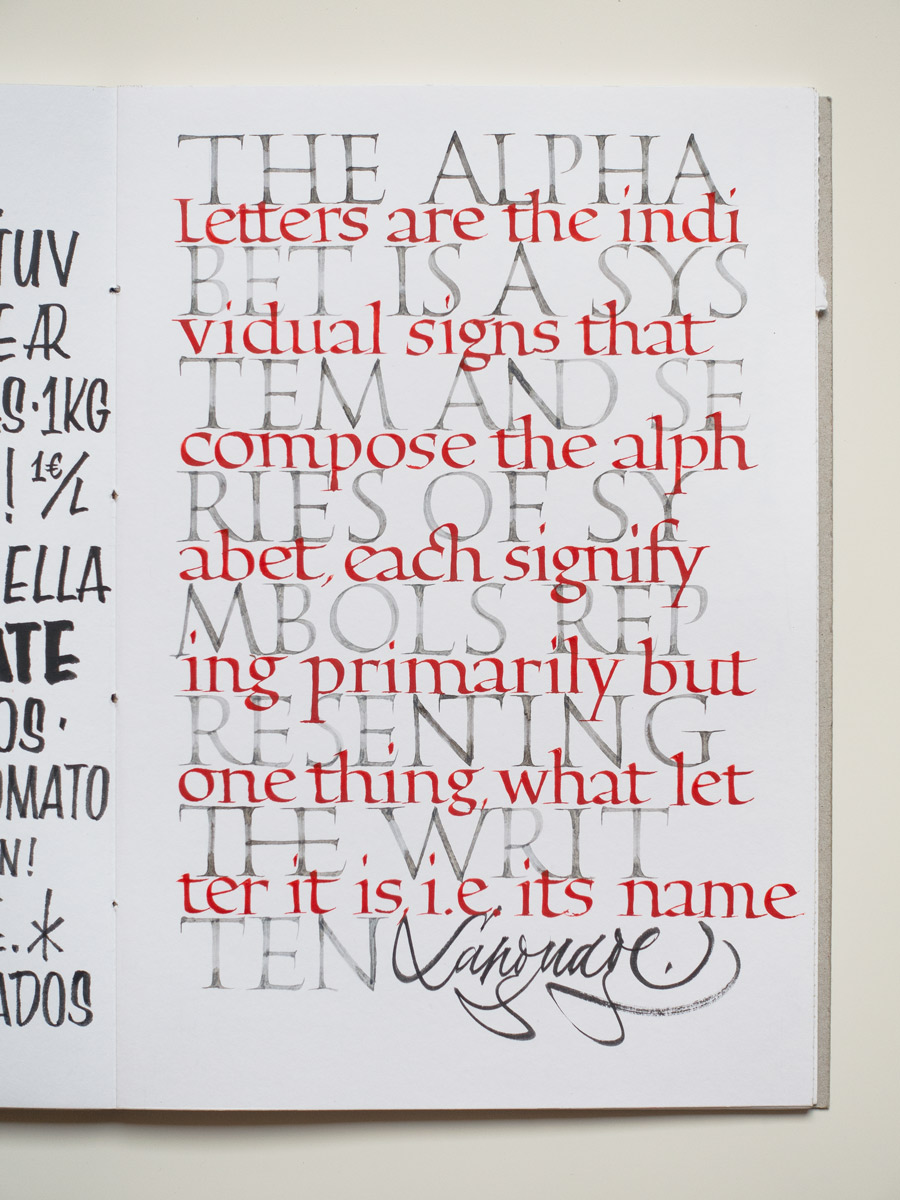 TUV
EAR
S·1KG
! 1€/L
ELLA
ATE
OS·
OMATO
N!
E.*
ADOS
THE ALPHA
Letters are the indi
BET IS A SYS
vidual signs that
TEM AND SE
compose the alph
RIES OF SY
abet, each signify
MBOLS REP
ing primarily but
RESENTING
one thing, what let
THE WRIT
ter it is, i.e. its name
TEN Language.